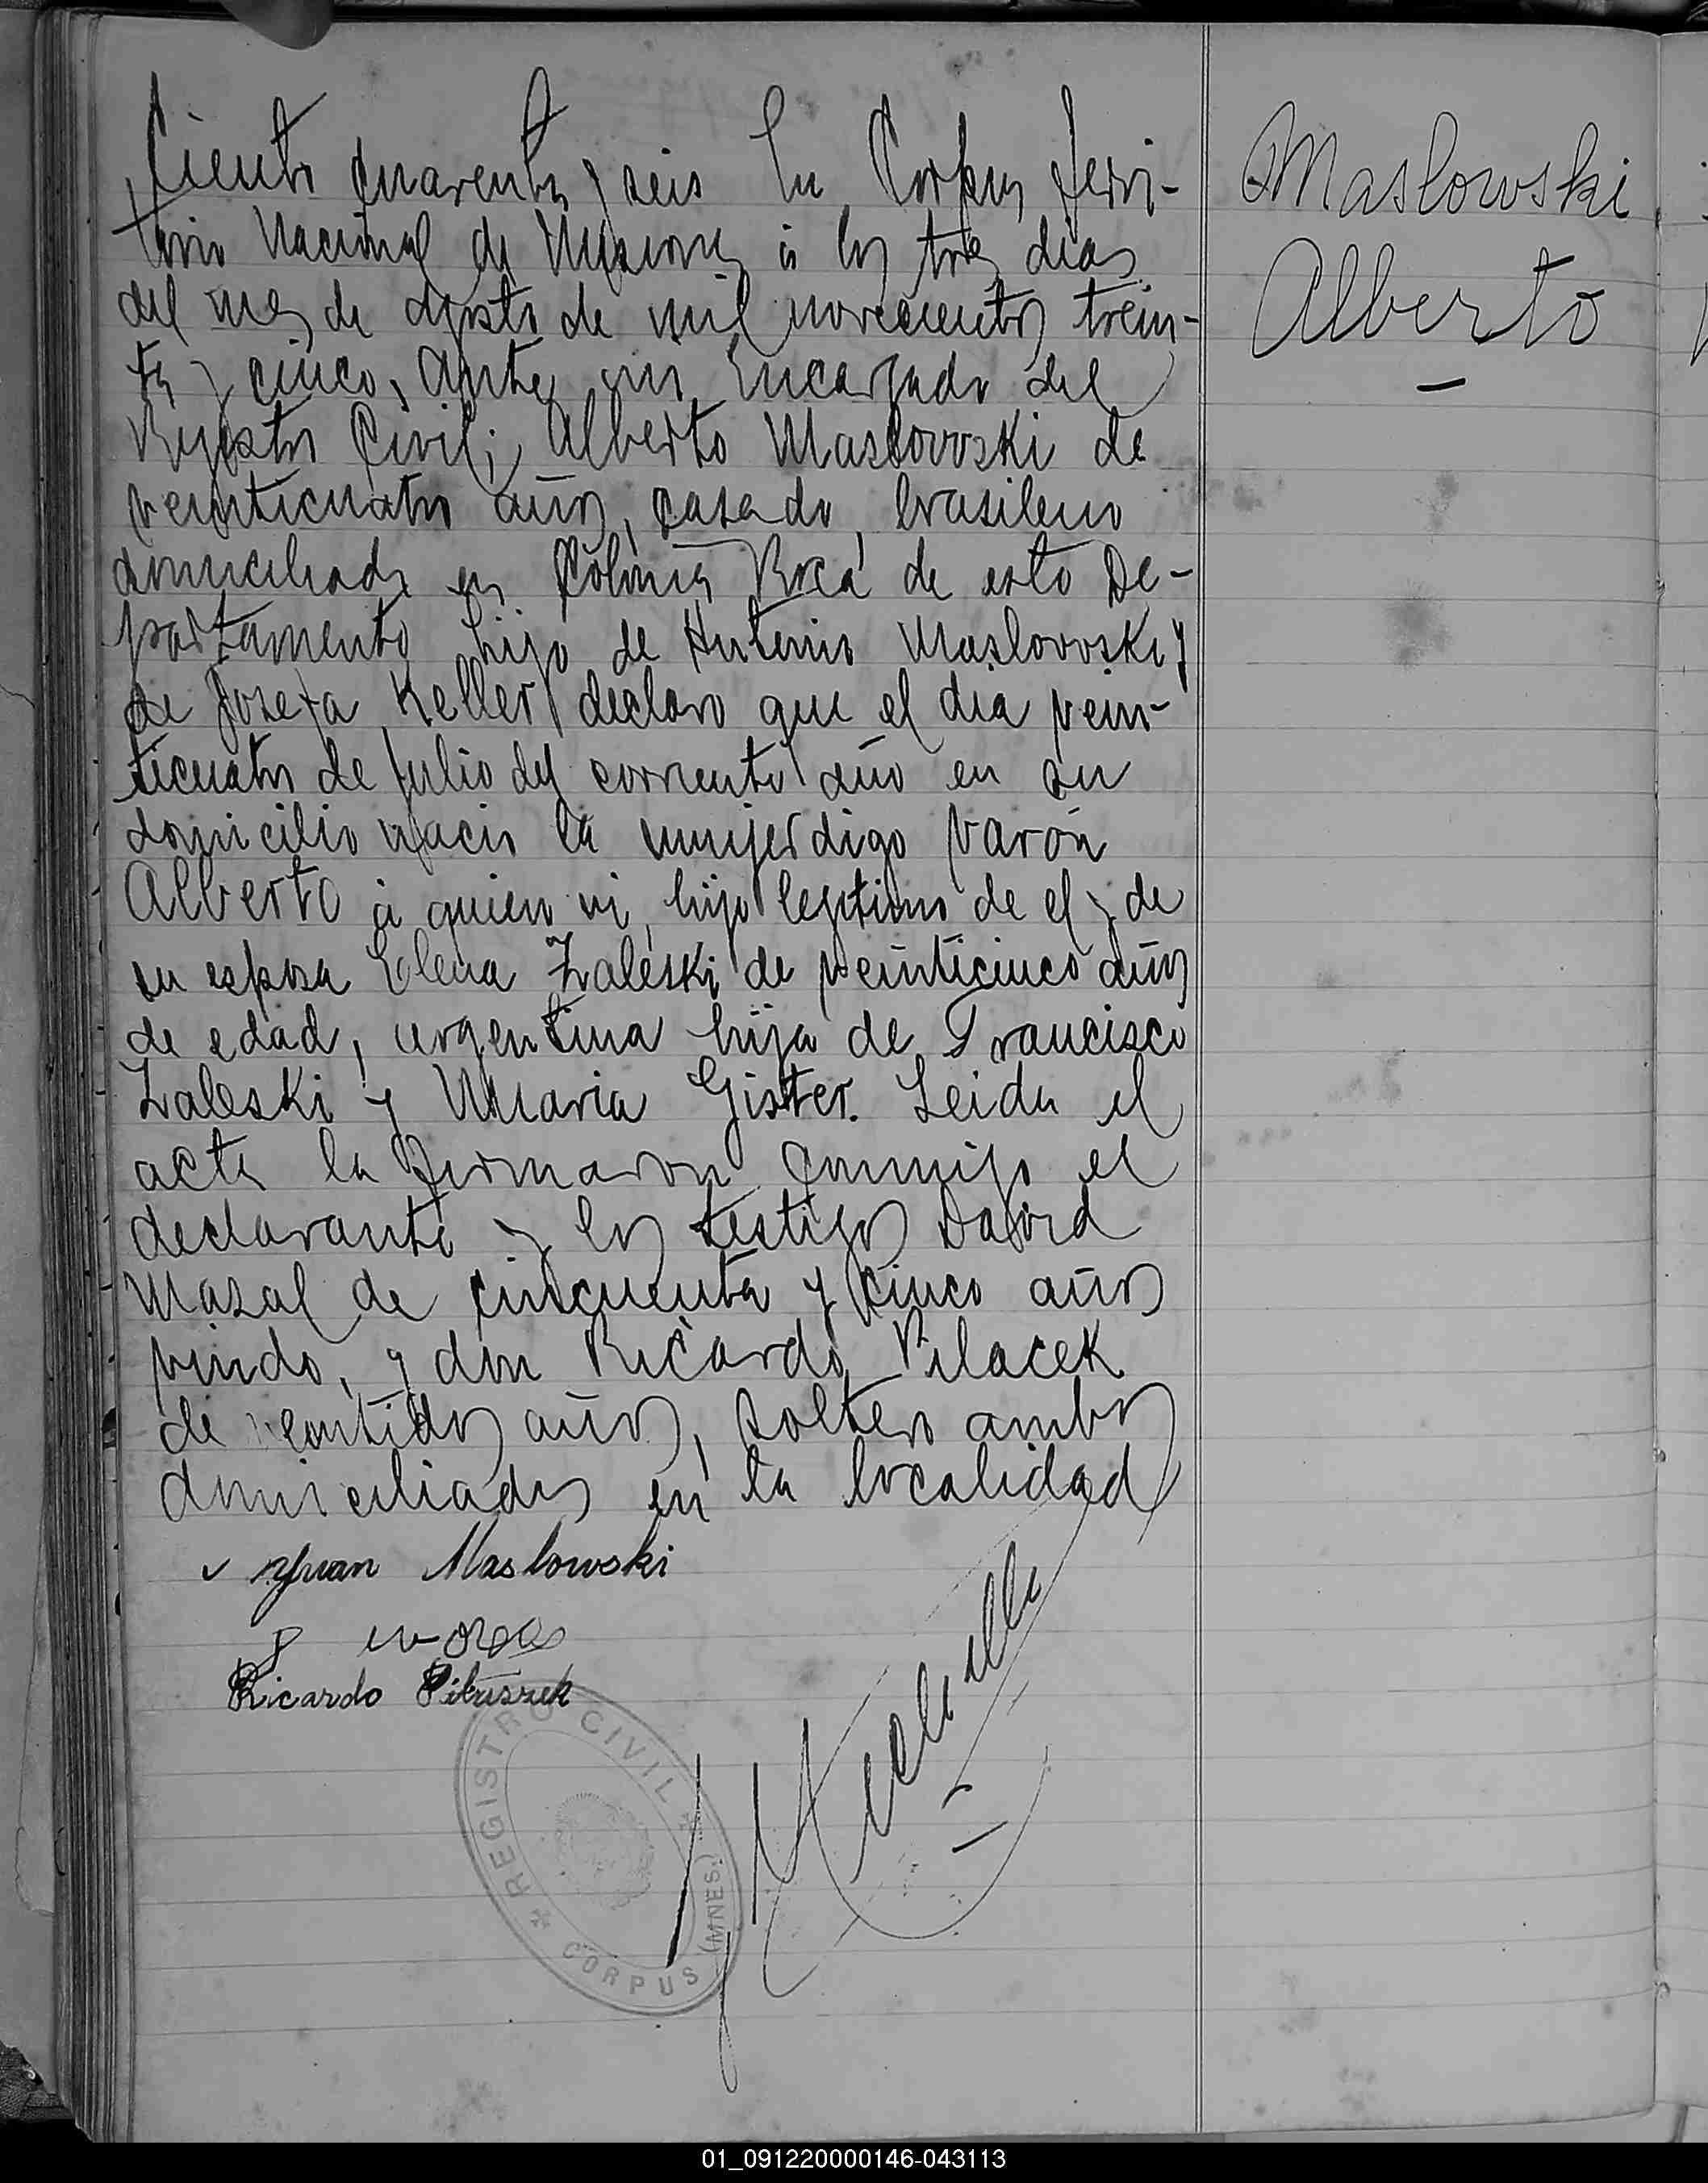 Ciento cuarenta y seis En Corpus Terri-
torio Nacional de Misiones á los tres dias
del mes de agosto de mil novecientos trein-
ta y cinco, ante mi Encargado del
Registro Civil; Alberto Maslowski de
veinticuatro años, casado, brasileno
domiciliado en Colonia Roca de este De-
partamento hijo de Antonio Maslowski y
de Josefa Keller declaro que el dia vein-
ticuatro de Julio del corriente año en su
domicilio nacio la mujer digo varón
Alberto á quien vi, hijo legitimo de el y de
su esposa Elena Zaleski de veinticinco años
de edad, argentina hija de Francisco
Zaleski y Maria Gister. Leida el
acta la firmaron conmigo el
declarante y los testigos David
Mazal de cincuenta y cinco años
viudo, y don Ricardo Pilacek
de veintidos años, soltero ambos
domiciliados en la localidad
Juan Maslowski
Ricardo
REGISTRO CIVIL
CORPUS (MNES.)
Maslowski
Alberto
01_091220000146-043113